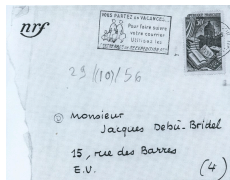 nrf
VOUS PARTEZ en VACANCES
Pour faire suivre
votre courrier
Utilisez les
29 /(10)/ 56
Monsieur
Jacques Debû-Bridel
15, rue des Barres
E.V. (4)